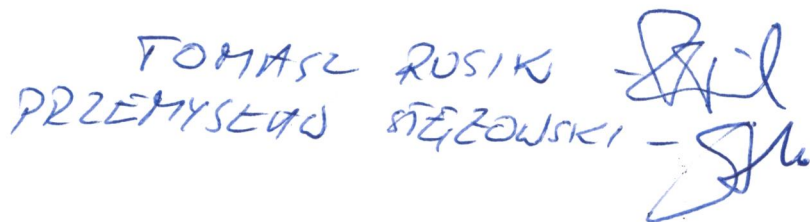 TOMASZ RUSIN -
PRZEMYSŁAW STĘZOWSKI -